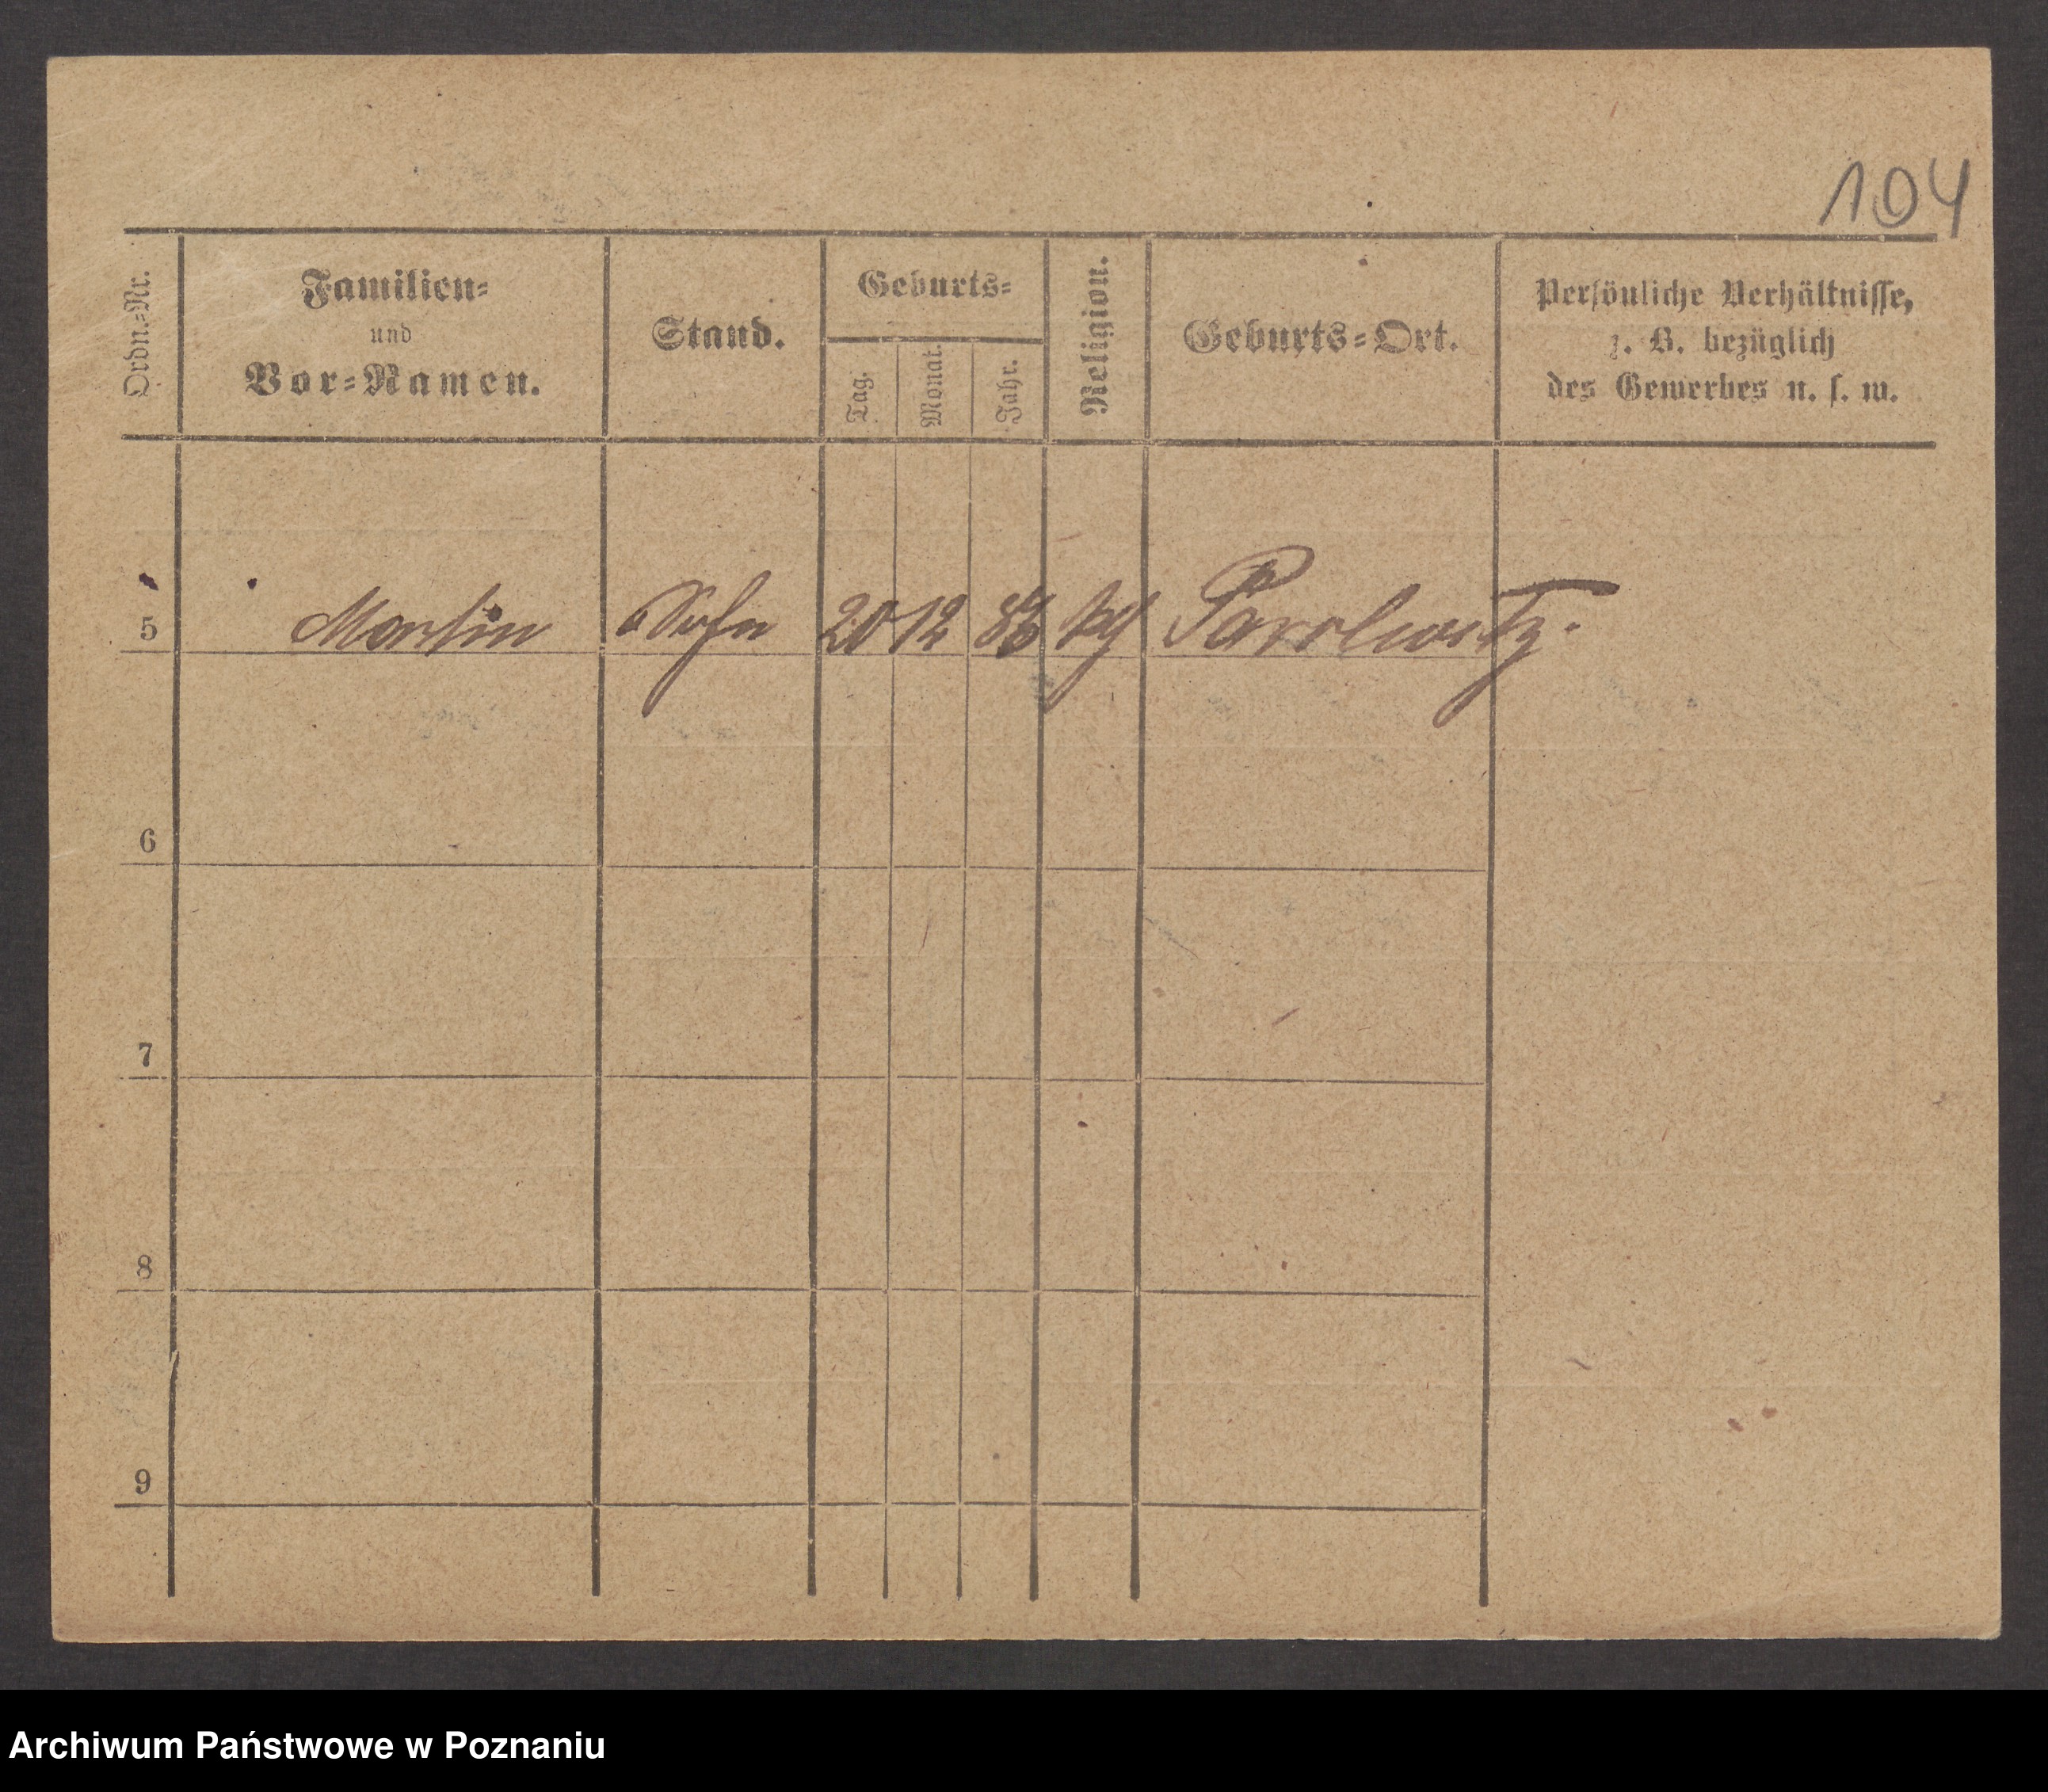 104
Ordn.-Nr.
Familien-
und
Vor-Namen.
Stand.
Geburts-
Tag.
Monat.
Jahr.
Religion.
Geburts-Ort.
Persönliche Verhältnisse,
z. B. bezüglich
des Gewerbes u. s. w.
5 Martin Sohn 20 12 86
6
7
8
9
Archiwum Państwowe w Poznaniu